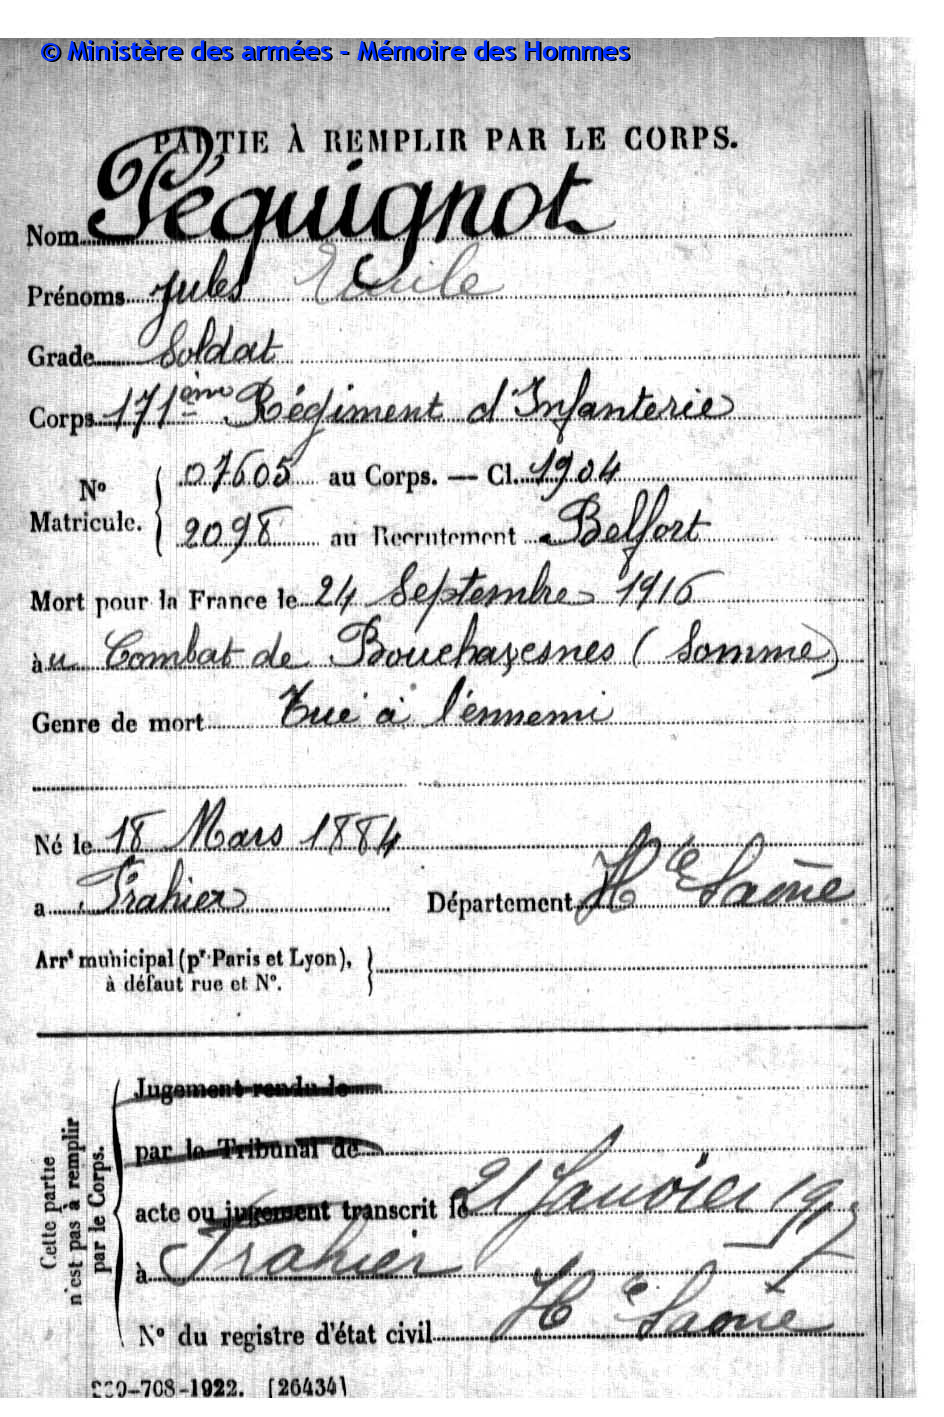 © Ministère des armées - Mémoire des Hommes
PARTIE À REMPLIR PAR LE CORPS.
Nom Péquignot
Prénoms Jules Emile
Grade Soldat
Corps 171ème Régiment d'Infanterie
No Matricule. { 07605 au Corps. — Cl. 1904
2098 au Recrutement Belfort
Mort pour la France le 24 Septembre 1916
àu Combat de Bouchavesnes (Somme)
Genre de mort Tué à l'ennemi
Né le 18 Mars 1884
a Frahier Département Hte Saône
Arrt municipal (pr Paris et Lyon),
à défaut rue et N°.
Cette partie n'est pas à remplir par le Corps.
Jugement rendu le
par le Tribunal de
acte ou jugement transcrit le 21 Janvier 1917
à Frahier
Hte Saône
No du registre d'état civil
708-1922. [26434]